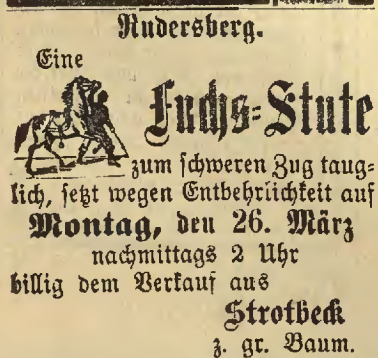 Rudersberg.
Eine
Fuchs=Stute
zum schweren Zug taug=
lich, setzt wegen Entbehrlichkeit auf
Montag, den 26. März
nachmittags 2 Uhr
billig dem Verkauf aus
Strotbeck
z. gr. Baum.